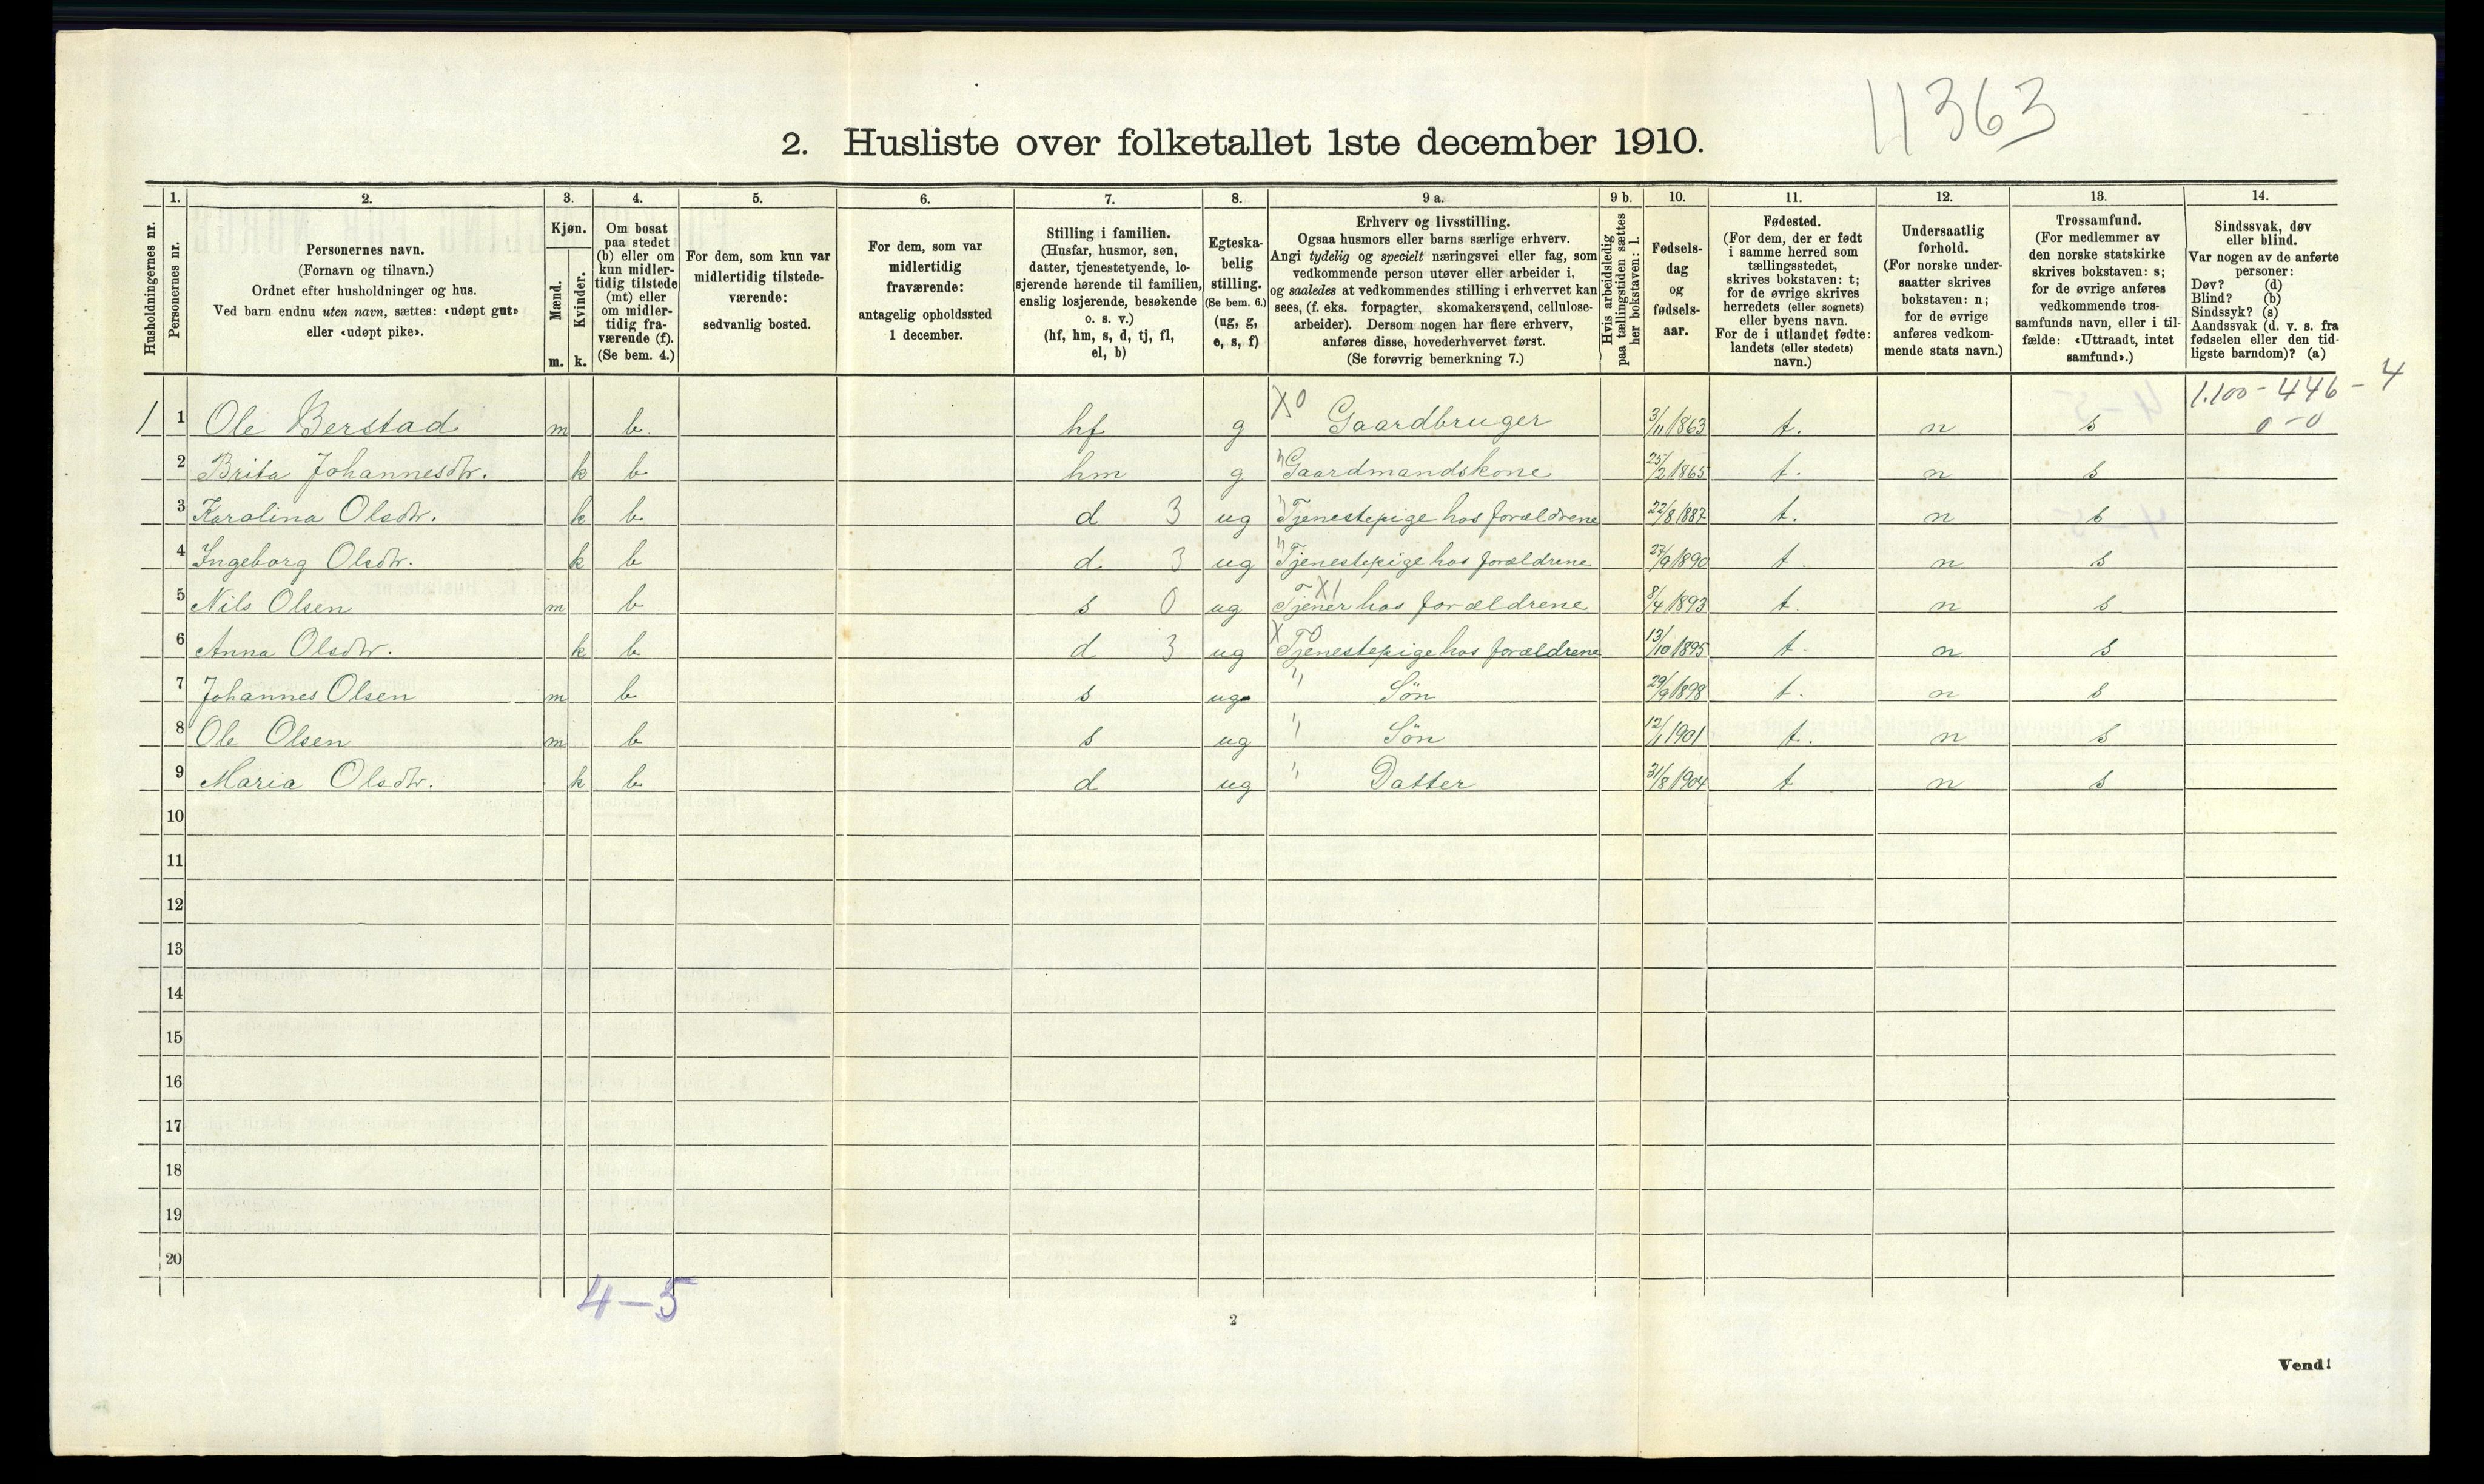 11363
2. Husliste over folketallet 1ste december 1910.
Husholdningernes nr.
1.
Personernes nr.
2.
Personernes navn.
(Fornavn og tilnavn.)
Ordnet efter husholdninger og hus.
Ved barn endnu uten navn, sættes: «udøpt gut»
eller «udøpt pike».
3.
Kjøn.
Mænd.
Kvinder.
m. k.
4.
Om bosat
paa stedet
(b) eller om
kun midler-
tidig tilstede
(mt) eller
om midler-
tidig fra-
værende (f).
(Se bem. 4.)
5.
For dem, som kun var
midlertidig tilstede-
værende:
sedvanlig bosted.
6.
For dem, som var
midlertidig
fraværende:
antagelig opholdssted
1 december.
7.
Stilling i familien.
(Husfar, husmor, søn,
datter, tjenestetyende, lo-
sjerende hørende til familien,
enslig losjerende, besøkende
o. s. v.)
(hf, hm, s, d, tj, fl,
el, b)
8.
Egteska-
belig
stilling.
(Se bem. 6.)
(ug, g,
e, s, f)
9 a.
Erhverv og livsstilling.
Ogsaa husmors eller barns særlige erhverv.
Angi tydelig og specielt næringsvei eller fag, som
vedkommende person utøver eller arbeider i,
og saaledes at vedkommendes stilling i erhvervet kan
sees, (f. eks. forpagter, skomakersvend, cellulose-
arbeider). Dersom nogen har flere erhverv,
anføres disse, hovederhvervet først.
(Se forøvrig bemerkning 7.)
9 b.
Hvis arbeidsledig
paa tællingstiden sættes
her bokstaven: l.
10.
Fødsels-
dag
og
fødsels-
aar.
11.
Fødested.
(For dem, der er født
i samme herred som
tællingsstedet,
skrives bokstaven: t;
for de øvrige skrives
herredets (eller sognets)
eller byens navn.
For de i utlandet fødte:
landets (eller stedets)
navn.)
12.
Undersaatlig
forhold.
(For norske under-
saatter skrives
bokstaven: n;
for de øvrige
anføres vedkom-
mende stats navn.)
13.
Trossamfund.
(For medlemmer av
den norske statskirke
skrives bokstaven: s;
for de øvrige anføres
vedkommende tros-
samfunds navn, eller i til-
fælde: «Uttraadt, intet
samfund».)
14.
Sindssvak, døv
eller blind.
Var nogen av de anførte
personer:
Døv? (d)
Blind? (b)
Sindssyk? (s)
Aandssvak (d. v. s. fra
fødselen eller den tid-
ligste barndom)? (a)
1.100 - 446 - 4
1 1 Ole Berstad m b. hf g X0 Gaardbruger 3/11 1863 t. n s 0-0
2 Brita Johannesdtr. k b hm g " Gaardmandskone 25/2 1865 t. n s
3 Karolina Olsdtr. k b d 3 ug " Tjenestepige hos forældrene 22/8 1887 t. n s
4 Ingeborg Olsdtr. k b d 3 ug " Tjenestepige hos forældrene 27/9 1890 t. n s
5 Nils Olsen m b s 0 ug X1 Tjener hos forældrene 8/4 1893 t. n s
6 Anna Olsdtr. k b d 3 ug X0 Tjenestepige hos forældrene 13/10 1895 t. n s
7 Johannes Olsen m b s ug " Søn 29/9 1898 t. n s
8 Ole Olsen m b s ug " Søn 12/1 1901 t. n s
9 Maria Olsdtr. k b d ug " Datter 31/8 1904 t n s
10
11
12
13
14
15
16
17
18
19
20
4-5
2
Vend!